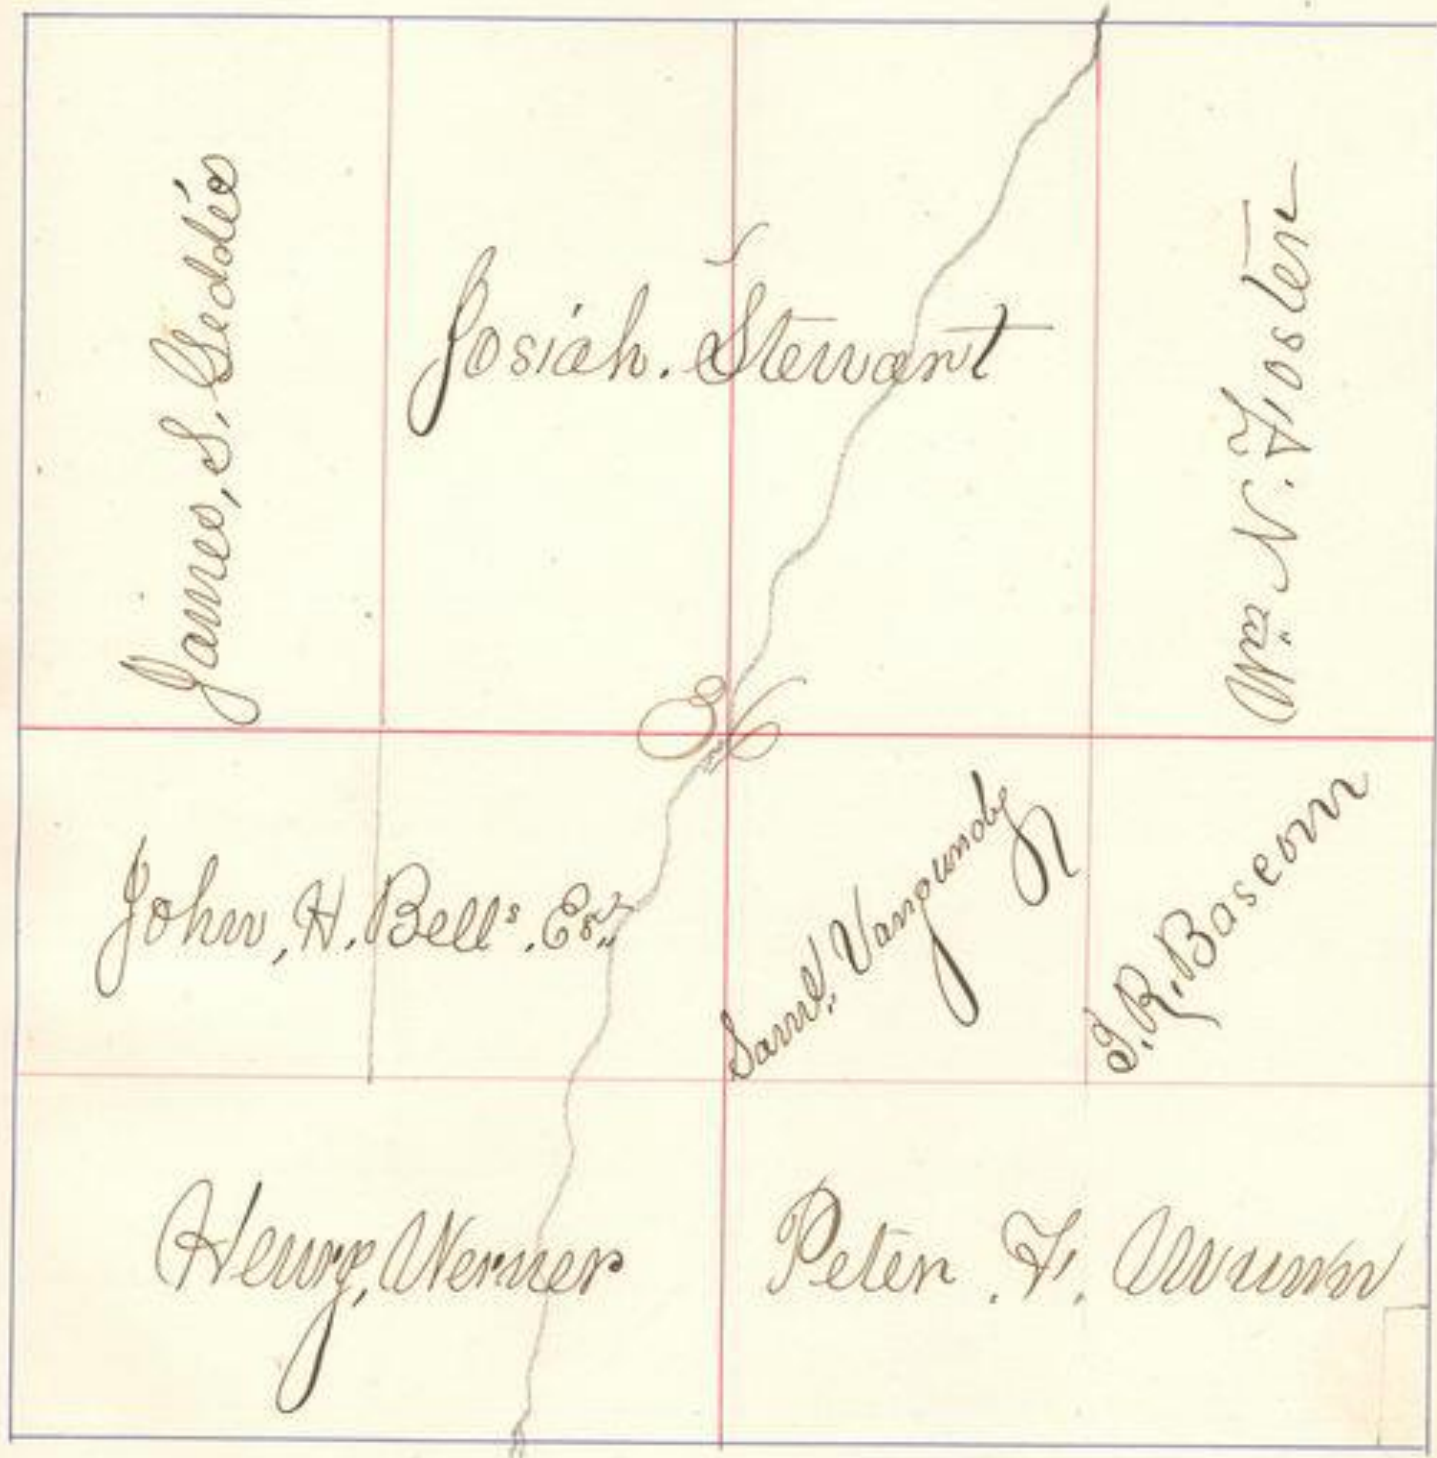 James, S. Geddes
Josiah. Stewart
Wm. N. Foster
36
John, H. Bell's. Est.
Saml. Vangundy
J. R. Bascom
Henry, Werner
Peter. F.